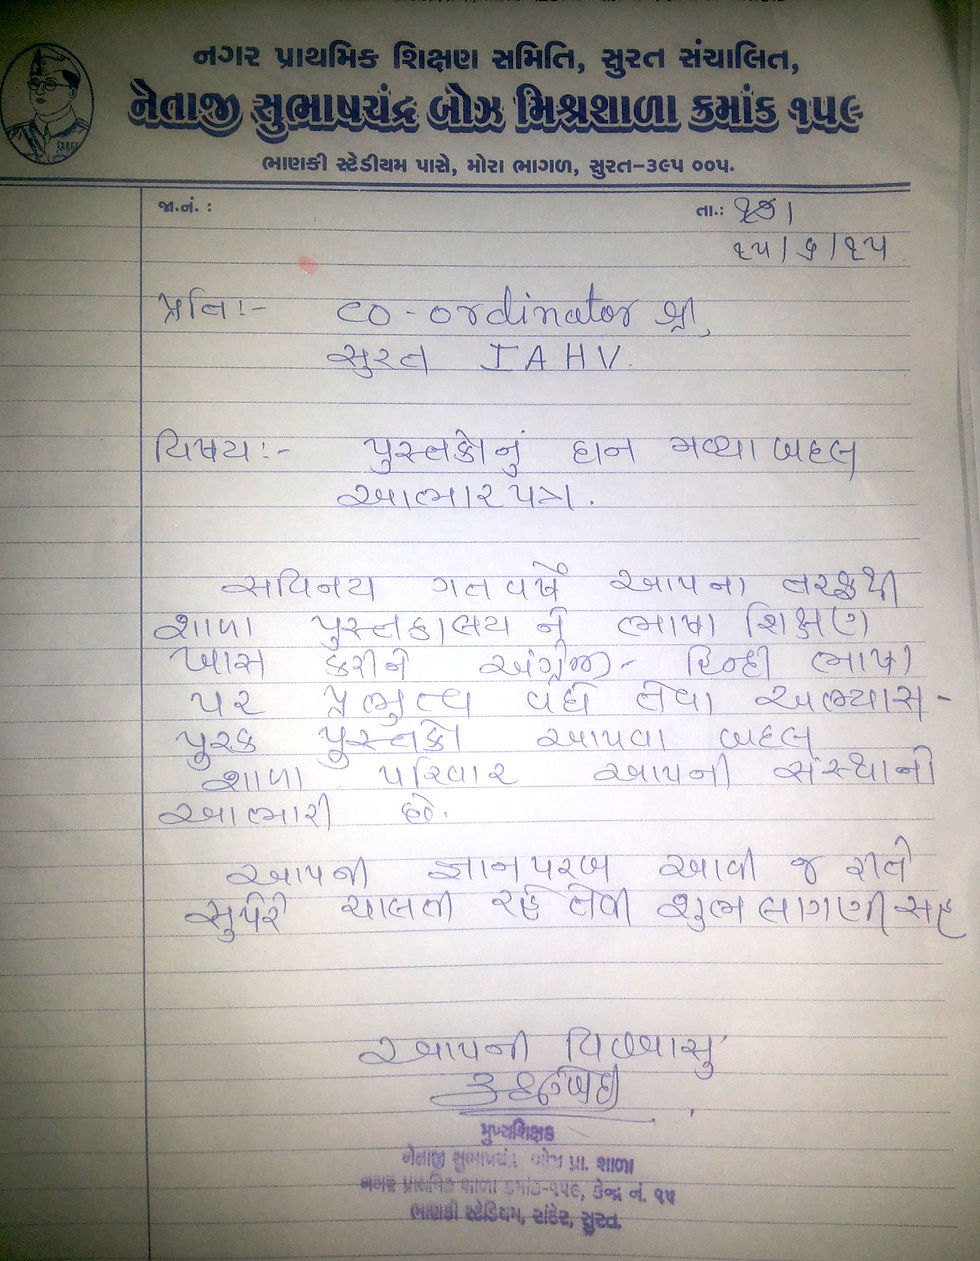 નગર પ્રાથમિક શિક્ષણ સમિતિ, સુરત સંચાલિત,
નેતાજી સુભાષચંદ્ર બોઝ મિશ્રશાળા ક્રમાંક ૧૫૯
ભાણકી સ્ટેડીયમ પાસે, મોરા ભાગળ, સુરત-૩૯૫ ૦૦૫.
જા.નં. :
તા.:
૧૫/૬/૧૫
પ્રતિઃ- co-ordinator શ્રી,
સુરત IAHV.
વિષયઃ- પુસ્તકોનું દાન મળ્યા બદલ
આભારપત્ર.
સવિનય ગતવર્ષે આપના તરફથી
શાળા પુસ્તકાલય ને ભાષા શિક્ષણ
ખાસ કરીને અંગ્રેજી- હિન્દી ભાષા
પર પ્રભુત્વ વધે તેવા અભ્યાસ-
પુરક પુસ્તકો આપવા બદલ
શાળા પરિવાર આપની સંસ્થાની
આભારી છે.
આપની જ્ઞાનપરબ આવી જ રીતે
સુપેરે ચાલતી રહે તેવી શુભ લાગણી સહ
આપની વિશ્વાસુ
મુખ્યશિક્ષક
નેતાજી સુભાષચંદ્ર બોઝ પ્રા. શાળા
નગર પ્રાથમિક શાળા ક્રમાંક-૧૫૯, કેન્દ્ર નં. ૧૫
ભાણકી સ્ટેડિયમ, રાંદેર, સુરત.